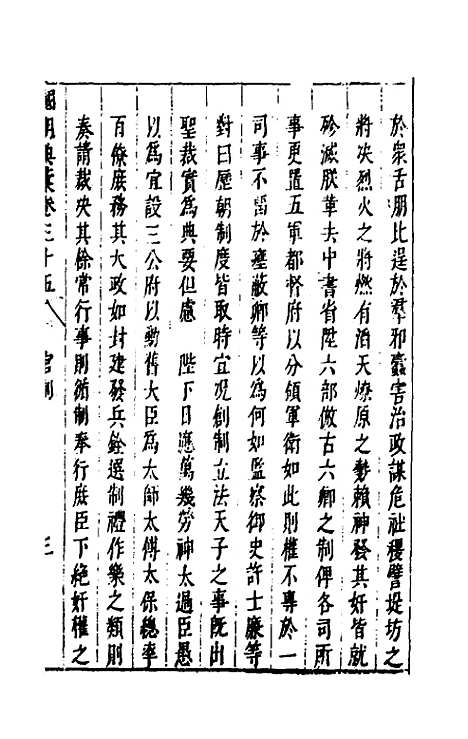 於衆舌朋比逞於群邪蠹害治政謀危社稷譬堤坊之
將决烈火之將燃有滔天燎原之勢賴神發其奸皆就
殄滅朕革去中書省陞六部倣古六卿之制俾各司所
事更置五軍都督府以分領軍衛如此則權不專於一
司事不留於壅蔽卿等以為何如監察御史許士廉等
對曰歷朝制度皆取時宜况創制立法天子之事旣出
聖裁實為典要但慮　陛下日應萬幾勞神太過臣愚
以為宜設三公府以勳舊大臣為太師太傅太保總率
百僚庶務其大政如封建發兵銓選制禮作樂之類則
奏請裁决其餘常行事則循制奉行庶臣下絶奸權之
國朝典彙卷三十五　官制　三